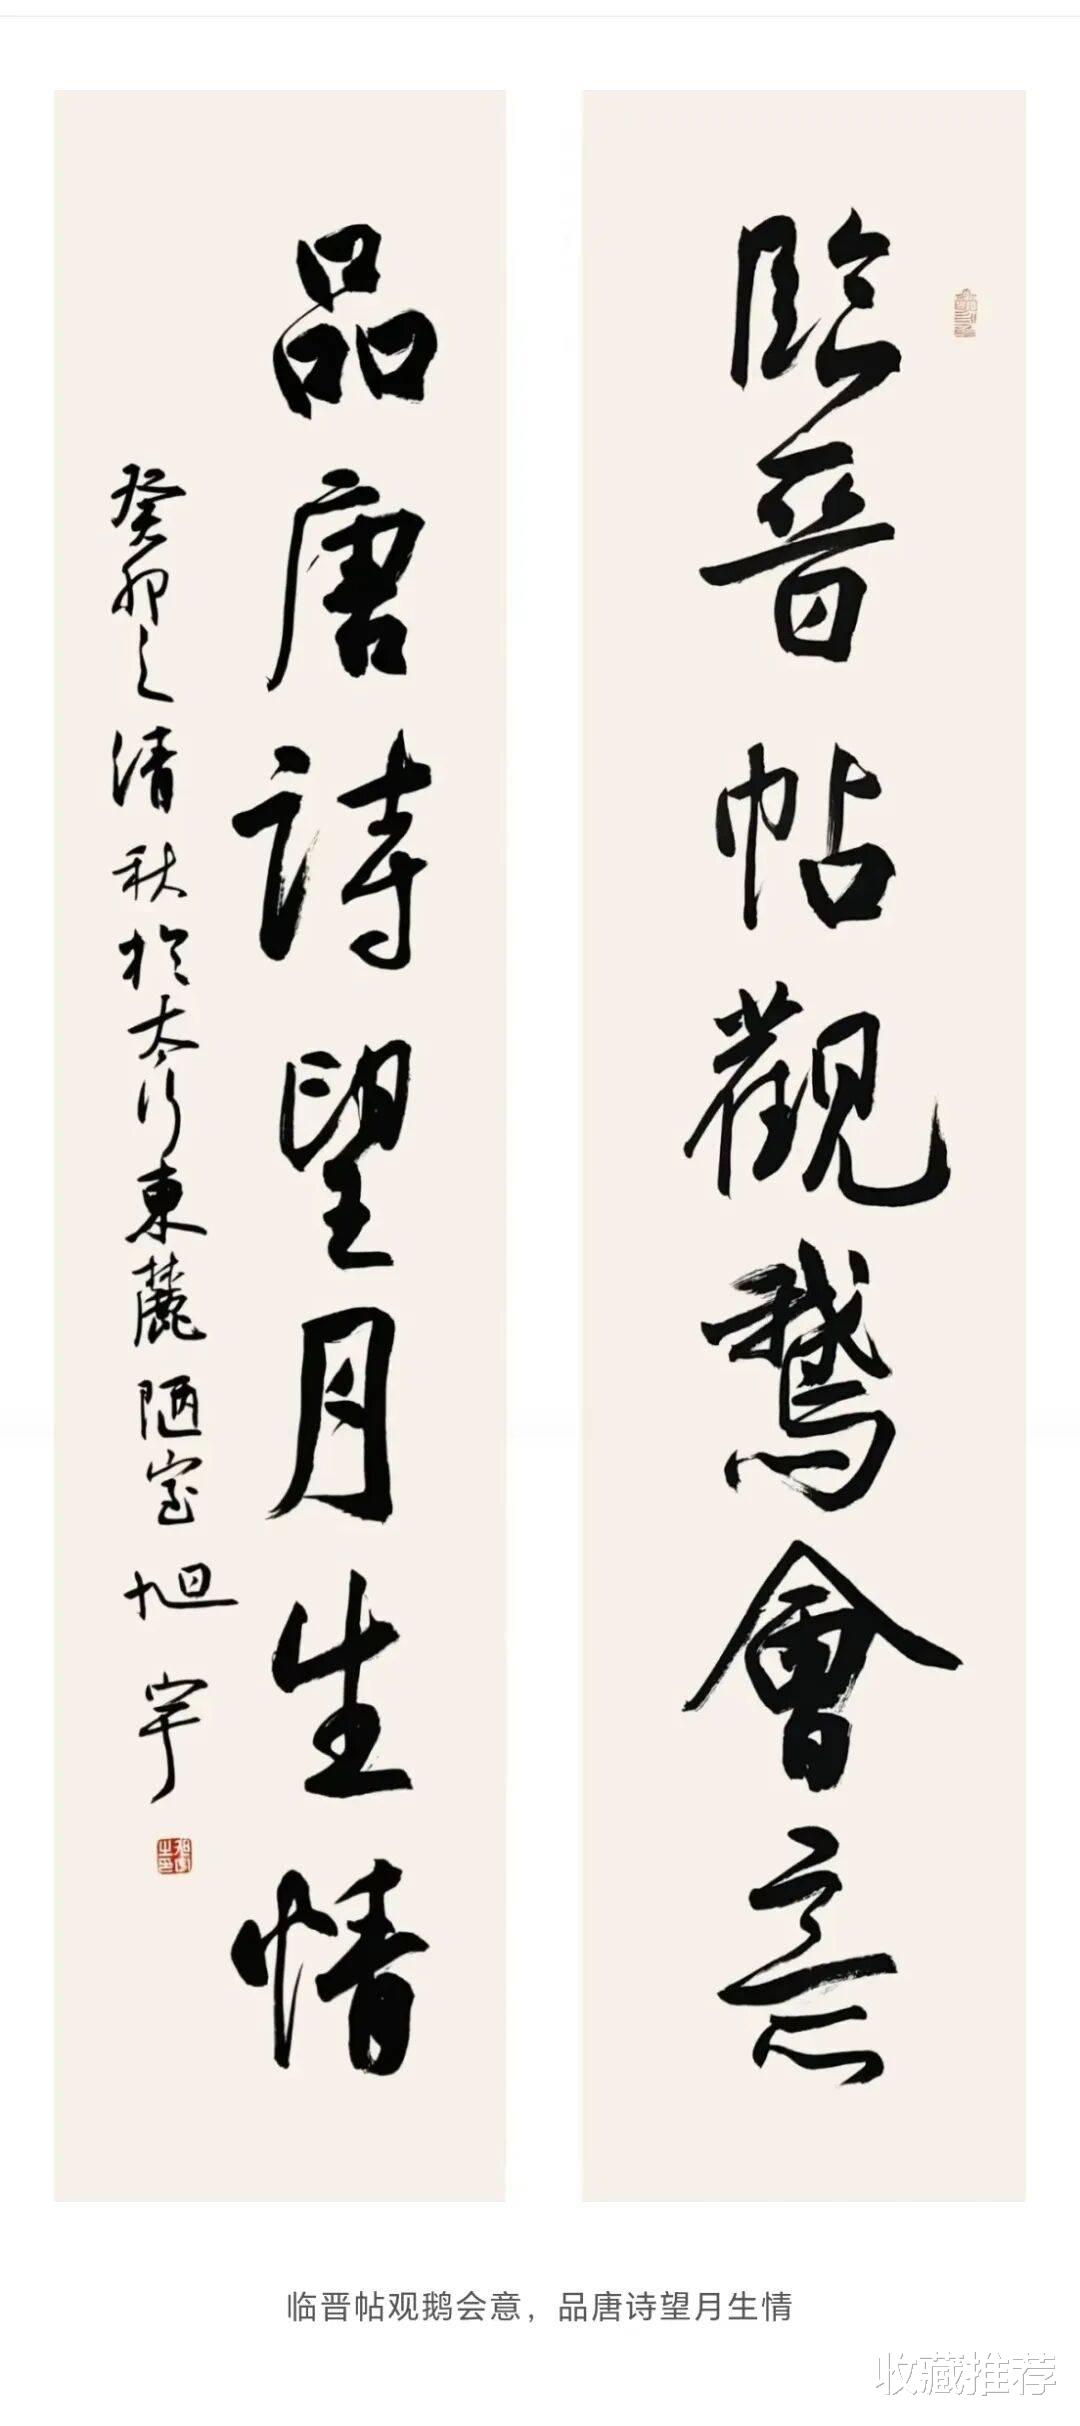 臨晉帖觀鵝會意
品唐詩望月生情
癸卯之清秋於太行東麓陋室旭宇
临晋帖观鹅会意，品唐诗望月生情
收藏推荐